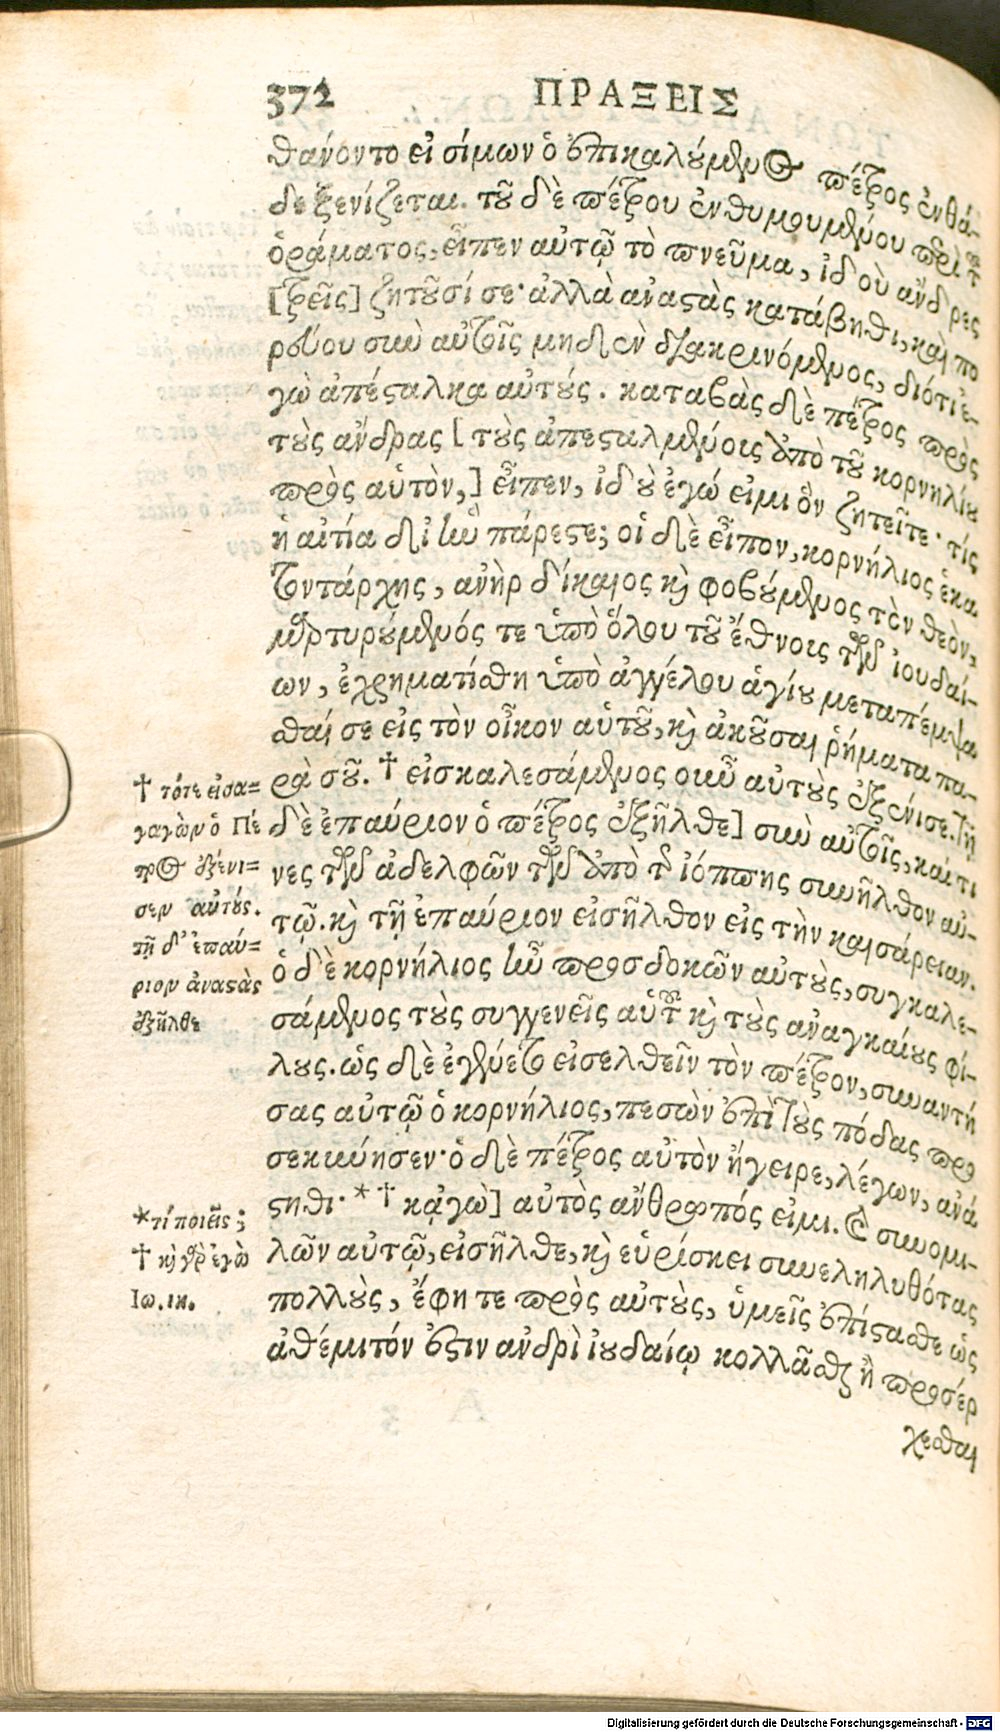 372 ΠΡΑΞΕΙΣ
θάνοντο εἰ σίμων ὁ ἐπικαλούμενος πέτρος ἐνθά-
δε ξενίζεται. τοῦ δὲ πέτρου ἐνθυμουμένου περὶ τοῦ
ὁράματος, εἶπεν αὐτῷ τὸ πνεῦμα, ἰδοὺ ἄνδρες
[τρεῖς] ζητοῦσί σε· ἀλλὰ ἀναστὰς κατάβηθι, καὶ πο
ρεύου σὺν αὐτοῖς μηδὲν διακρινόμενος, διότι ἐ-
γὼ ἀπέσταλκα αὐτούς. καταβὰς δὲ πέτρος πρὸς
τοὺς ἄνδρας [τοὺς ἀπεσταλμένοις ἀπὸ τοῦ κορνηλίου
πρὸς αὑτὸν,] εἶπεν, ἰδοὺ ἐγώ εἰμι ὃν ζητεῖτε· τίς
ἡ αἰτία δι' ἣν πάρεστε; οἱ δὲ εἶπον, κορνήλιος ἑκα
τοντάρχης, ἀνὴρ δίκαιος καὶ φοβούμενος τὸν θεὸν,
μαρτυρούμενός τε ὑπὸ ὅλου τοῦ ἔθνοις τῶν ἰουδαί-
ων, ἐχρηματίσθη ὑπὸ ἀγγέλου ἁγίου μεταπέμψα
σθαί σε εἰς τὸν οἶκον αὑτοῦ, καὶ ἀκοῦσαι ῥήματα πα-
ρὰ σοῦ. † εἰσκαλεσάμενος οὖν αὐτοὺς ἐξένισε. τῇ
δὲ ἐπαύριον ὁ πέτρος ἐξῆλθε] σὺν αὐτοῖς, καί τι
νες τῶν ἀδελφῶν τῶν ἀπὸ τῆς ἰόππης συνῆλθον αὐ-
τῷ. καὶ τῇ ἐπαύριον εἰσῆλθον εἰς τὴν καισάρειαν.
ὁ δὲ κορνήλιος ἦν προσδοκῶν αὐτοὺς, συγκαλε-
σάμενος τοὺς συγγενεῖς αὑτοῦ καὶ τοὺς ἀναγκαίους φί-
λους. ὡς δὲ ἐγένετο εἰσελθεῖν τὸν πέτρον, συναντή
σας αὐτῷ ὁ κορνήλιος, πεσὼν ἐπὶ τοὺς πόδας προ
σεκύνησεν· ὁ δὲ πέτρος αὐτὸν ἤγειρε, λέγων, ἀνά
στηθι· * † κἀγὼ] αὐτὸς ἄνθρωπός εἰμι. καὶ συνομι-
λῶν αὐτῷ, εἰσῆλθε, καὶ εὑρίσκει συνεληλυθότας
πολλοὺς, ἔφη τε πρὸς αὐτοὺς, ὑμεῖς ἐπίστασθε ὡς
ἀθέμιτόν ἐστιν ἀνδρὶ ἰουδαίῳ κολλᾶσθαι ἢ προσέρ
χεσθαι
† τότε εἰσα-
γαγὼν ὁ Πέ
τρος ἐξένι-
σεν αὐτούς.
τῇ δ' ἐπαύ-
ριον ἀναστὰς
ἐξῆλθε
*τί ποιεῖς;
† καὶ γὰρ ἐγὼ
Ιω. ιη.
Digitalisierung gefördert durch die Deutsche Forschungsgemeinschaft - DFG